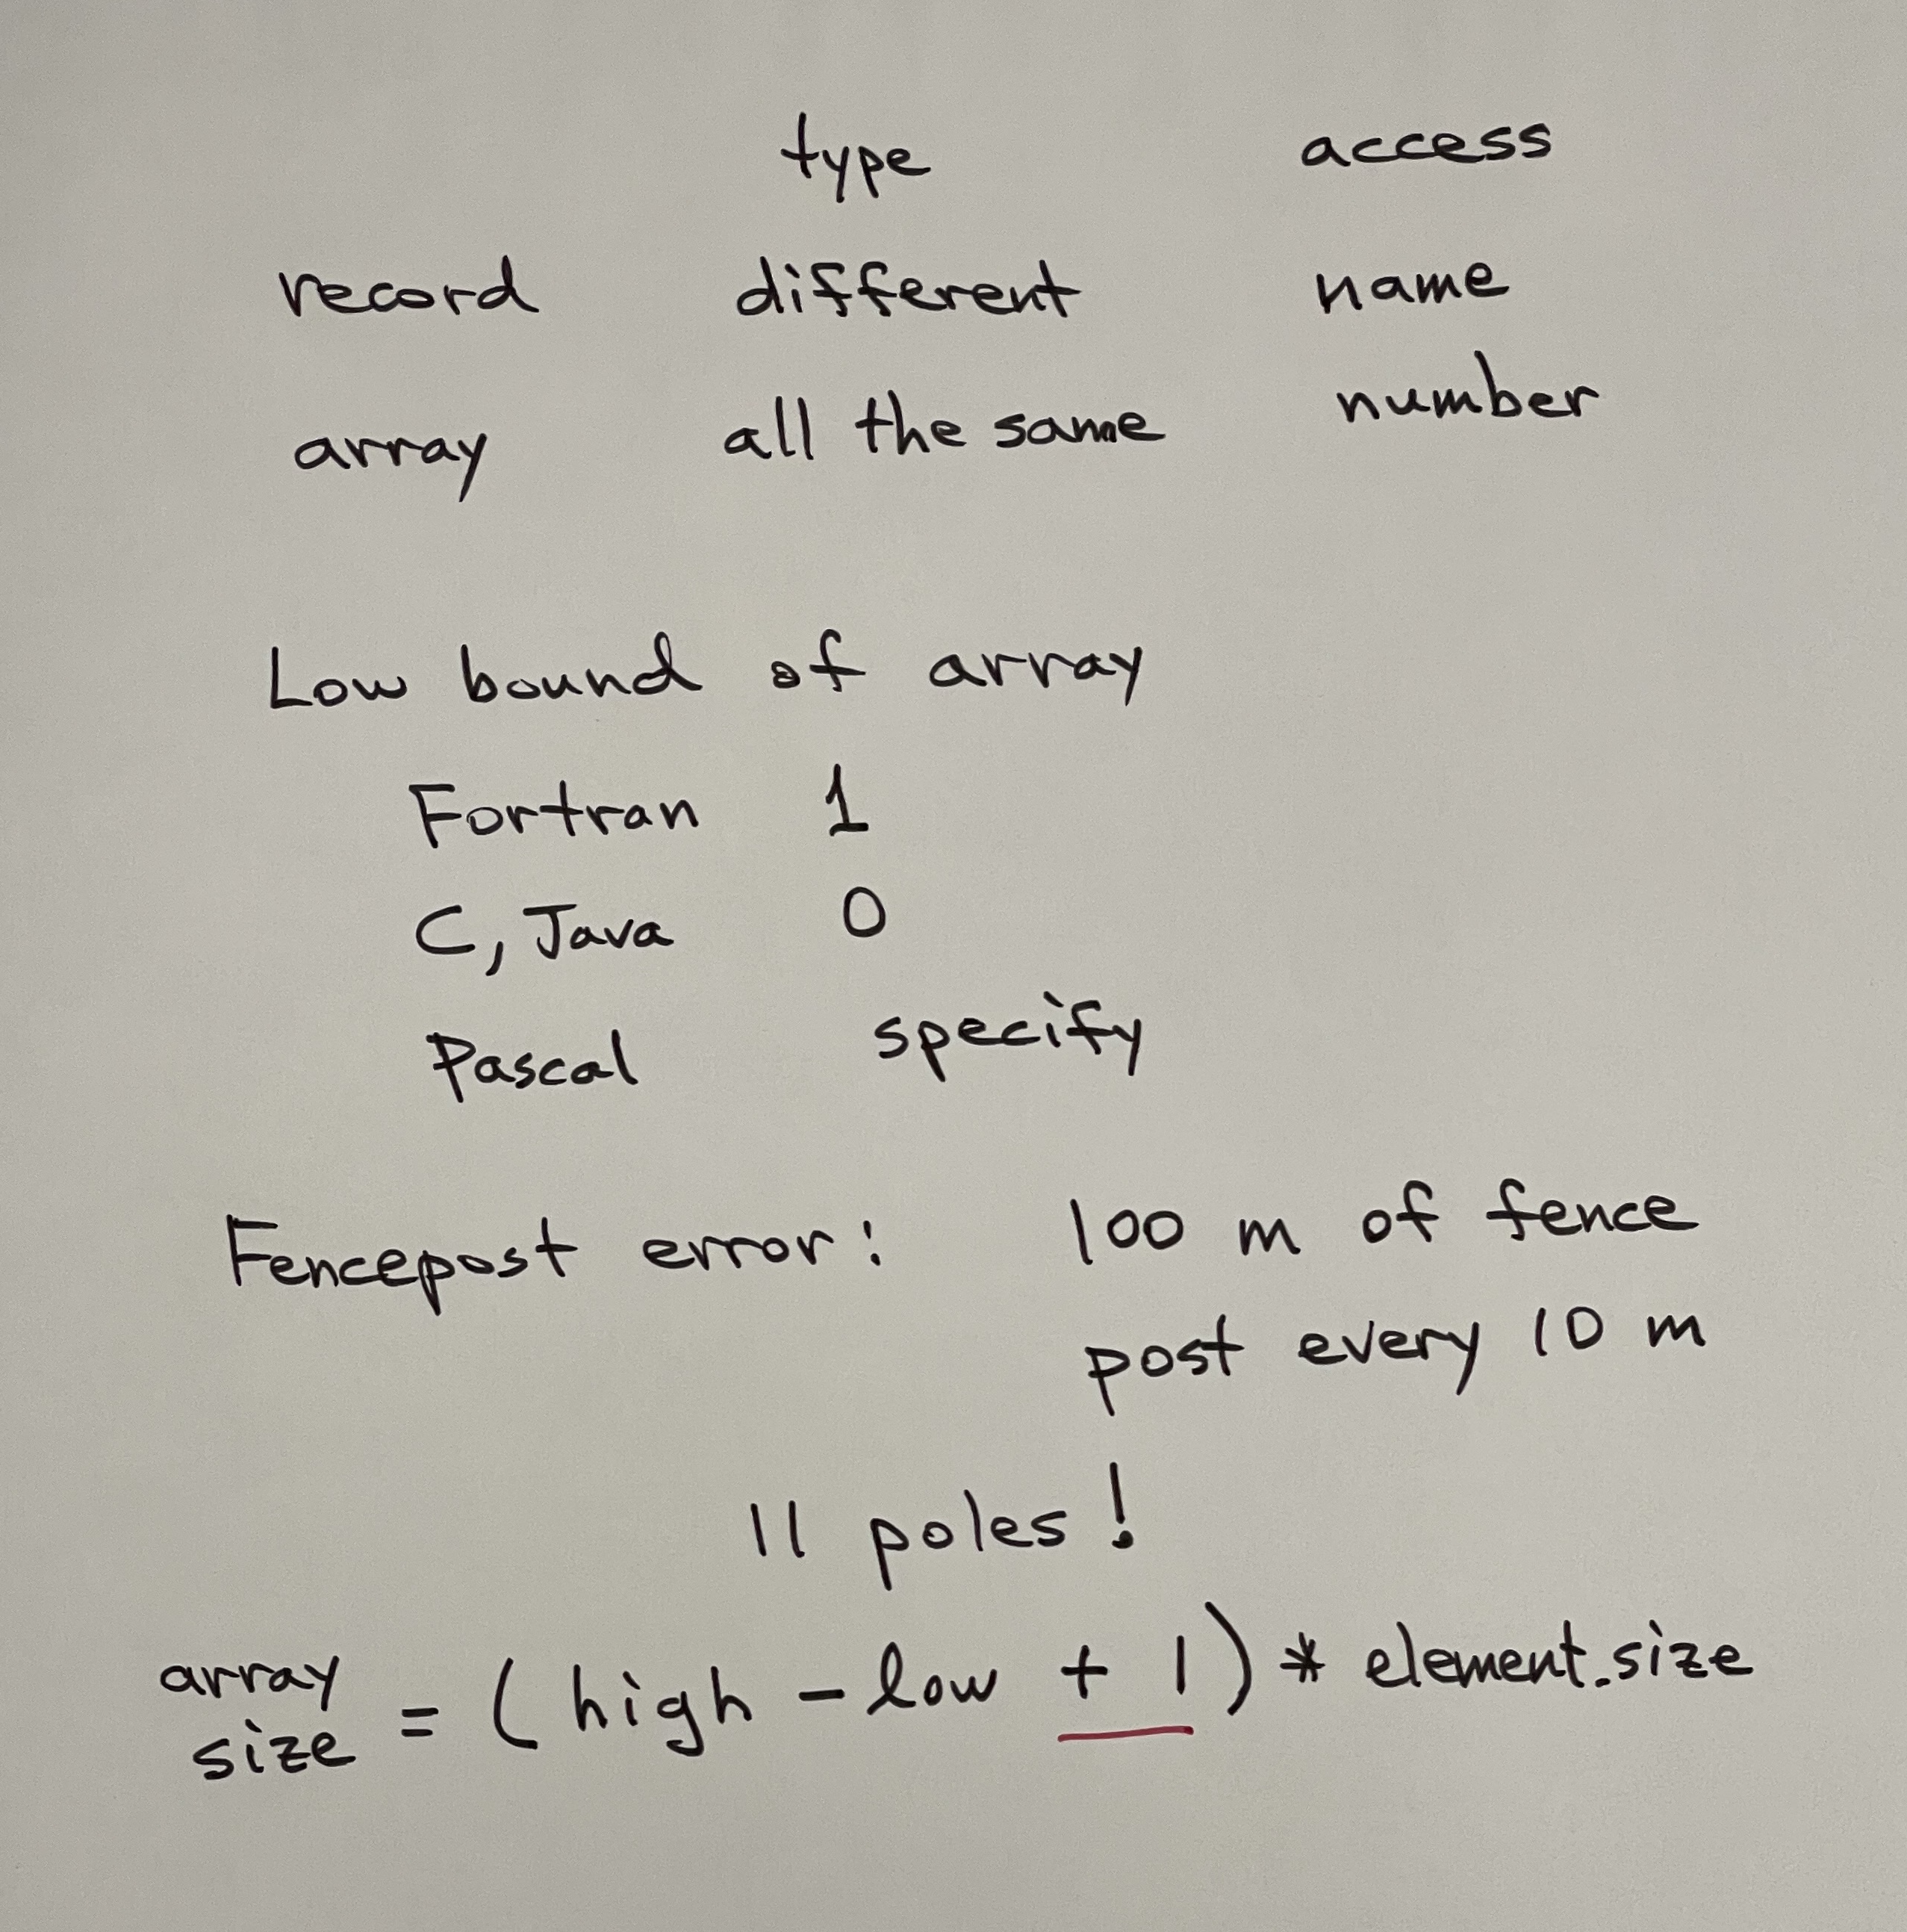 type access
record different name
array all the same number
Low bound of array
Fortran 1
C, Java 0
Pascal specify
Fencepost error: 100 m of fence
post every 10 m
11 poles!
array size = (high - low + 1) * element.size